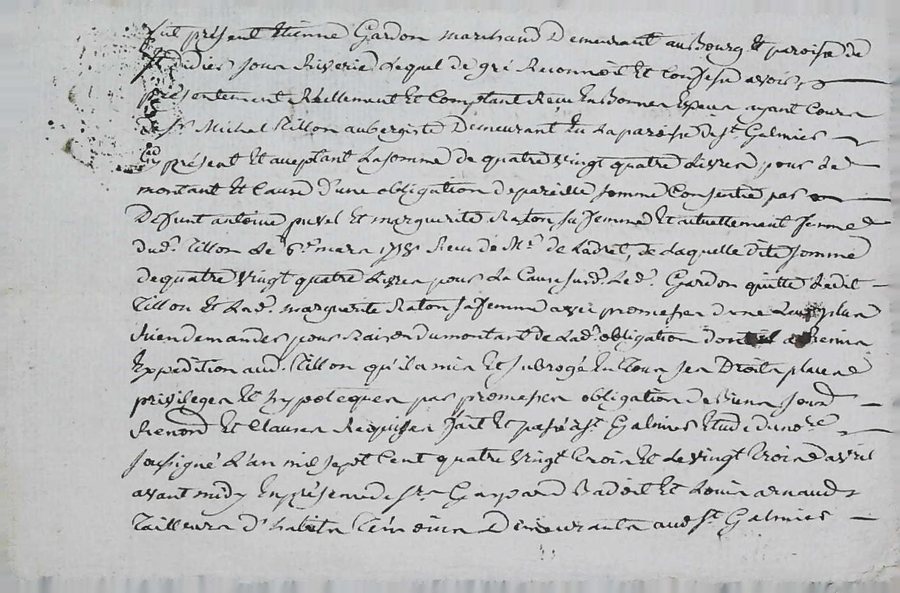 fut présent Etienne Gardon marchand Demeurant au Bourg et paroisse de
St Didier sous Riverie Lequel de gré Reconnois et Confesse avoir
présentement Réellement et Comptant Reçu En Bonnes Espèces ayant Cours
de Sr Michel Tillon aubergiste Demeurant En La paroisse de St Galmier
présent et acceptant La somme de quatre vingt quatre Livres pour le
montant et Cause d'une obligation de pareille somme Consentie par
Defunt antoine et marguerite Raton sa femme Et actuellement femme
dud. Tillon Le 6e mars Reçu de Me de Laquelle dite somme
de quatre vingt quatre Livres pour La Cause susd. Led. Gardon quitte Ledit
Tillon et Lad. marguerite Raton sa femme avec promesse de ne Leur plus
Rien demander pour Raison du montant de Lad. obligation dont il a Remis
Expédition aud. Tillon qu'il a mis Et subrogé En Tous ses Droits place
privileges Et hypoteques par promesses obligation de Biens soumd
Renond Et Clauses Requises fait Et passé à St Galmier Etude du nore
soussigné L'an mil sept Cent quatre vingt trois Et Le vingt trois d'avril
avant midy En présence de Srs Gaspard Badoit Et Louis arnaud
Tailleurs d'habits Témoins Demeurants aud St Galmier